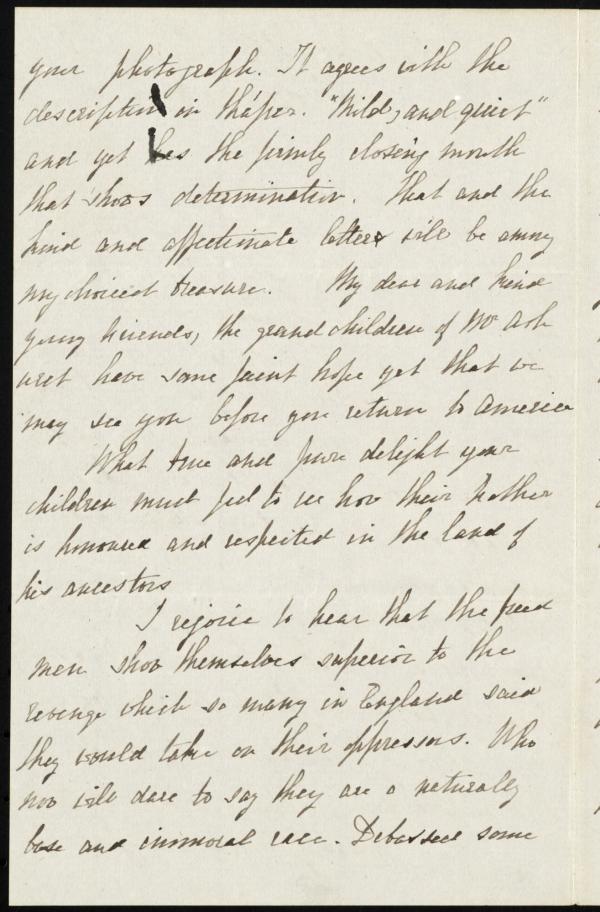 your photograph. It agrees with the
description in tha'per. "Mild, and quiet"
and yet has the firmly closing mouth
that shows determination. That and the
kind and affectionate letters will be among
my choicest treasure. My dear and kind
young friends, the grandchildren of Mr Ash
urst have some faint hope yet that we
may see you before you return to America
What true and pure delight your
children must feel to see how their Father
is honoured and respected in the land of
his ancestors
I rejoice to hear that the freed
men show themselves superior to the
revenge which so many in England said
they would take on their oppressors. Who
now will dare to say they are a naturally
base and immoral race. Debassed some